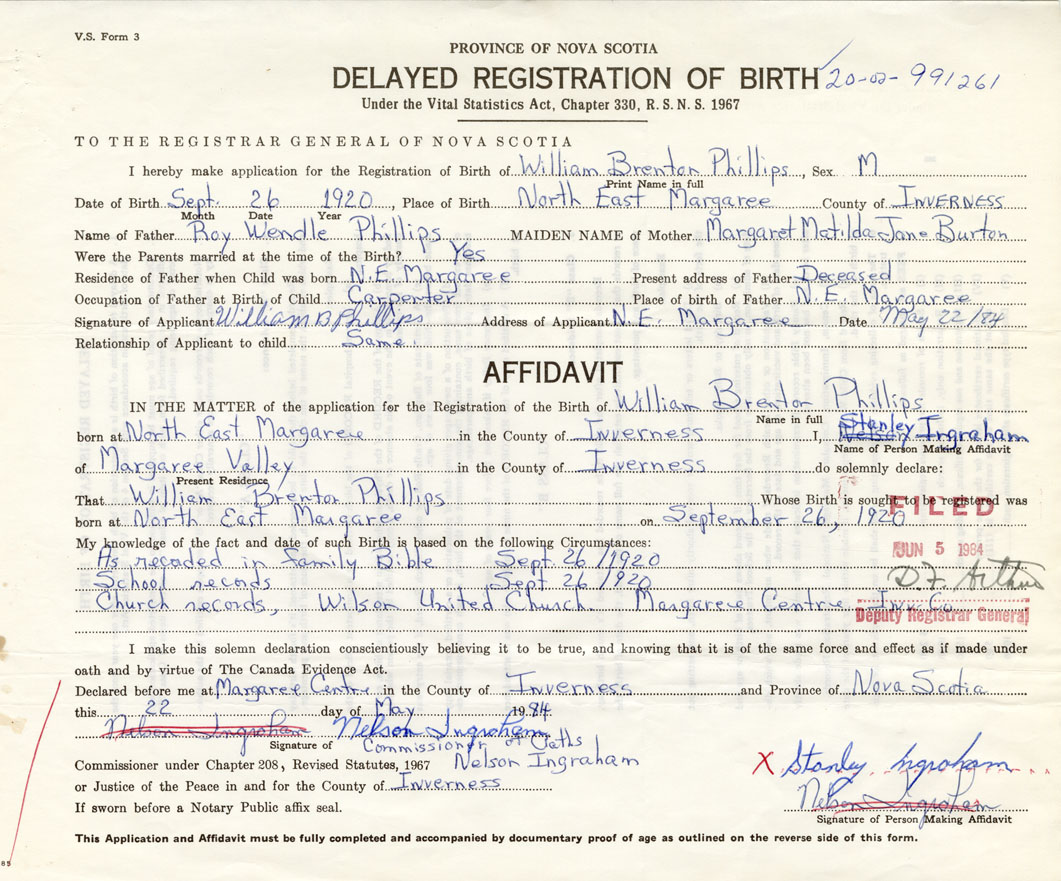 V.S. Form 3
PROVINCE OF NOVA SCOTIA
DELAYED REGISTRATION OF BIRTH 20-02-991261
Under the Vital Statistics Act, Chapter 330, R.S.N.S. 1967
TO THE REGISTRAR GENERAL OF NOVA SCOTIA
I hereby make application for the Registration of Birth of William Brenton Phillips, Sex M
Print Name in full
Date of Birth Sept. 26 1920, Place of Birth North East Margaree County of INVERNESS
Month Date Year
Name of Father Roy Wendle Phillips MAIDEN NAME of Mother Margaret Matilda Jane Burton
Were the Parents married at the time of the Birth? Yes
Residence of Father when Child was born N.E. Margaree Present address of Father Deceased
Occupation of Father at Birth of Child Carpenter Place of birth of Father N.E. Margaree
Signature of Applicant William B Phillips Address of Applicant N.E. Margaree Date May 22/84
Relationship of Applicant to child Same.
AFFIDAVIT
IN THE MATTER of the application for the Registration of the Birth of William Brenton Phillips
Name in full Stanley
born at North East Margaree in the County of Inverness I, Nelson Ingraham
Name of Person Making Affidavit
of Margaree Valley in the County of Inverness do solemnly declare:
Present Residence
That William Brenton Phillips Whose Birth is sought to be registered was
FILED
born at North East Margaree on September 26, 1920
My knowledge of the fact and date of such Birth is based on the following Circumstances:
JUN 5 1984
As recaded in family Bible Sept. 26/1920
School records Sept 26/1920
D.F. Arthur
Church records, Wilson United Church Margaree Centre Inv. Co.
Deputy Registrar General
I make this solemn declaration conscientiously believing it to be true, and knowing that it is of the same force and effect as if made under
oath and by virtue of The Canada Evidence Act.
Declared before me at Margaree Centre in the County of Inverness and Province of Nova Scotia
this 22 day of May 1984.
Nelson Ingraham Nelson Ingraham
Signature of Commissioner of Oaths
Commissioner under Chapter 208, Revised Statutes, 1967 Nelson Ingraham
X Stanley Ingraham
or Justice of the Peace in and for the County of Inverness
Nelson Ingraham
If sworn before a Notary Public affix seal.
Signature of Person Making Affidavit
This Application and Affidavit must be fully completed and accompanied by documentary proof of age as outlined on the reverse side of this form.
85